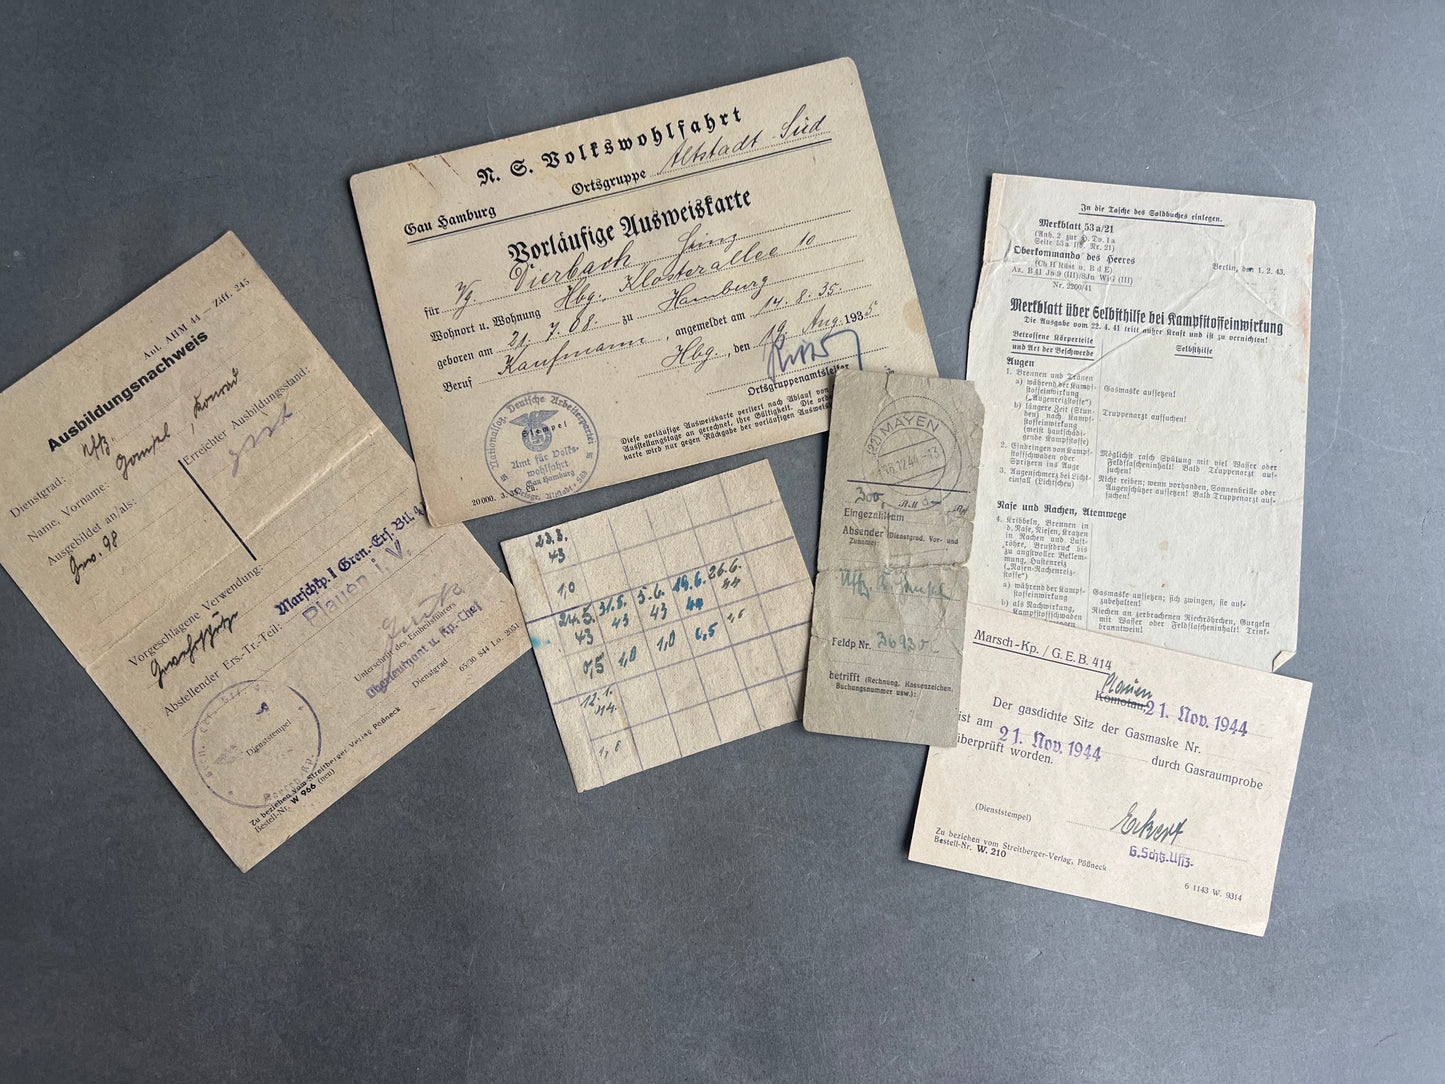 Anl. AHM 44 — Ziff. 245
Ausbildungsnachweis
Dienstgrad: Uffz.
Name, Vorname: Konrad
Ausgebildet an/als:
Gew. 98
Erreichter Ausbildungsstand:
Vorgeschlagene Verwendung:
Abstellender Ers-Tr.-Teil: Marschkp. I Gren.-Ers. Btl. 4
Plauen i. V.
Unterschrift des Einheitsführers
Oberleutnant u. Kp.-Chef
Dienstgrad
Dienststempel
Zu beziehen vom Streitberger Verlag Pößneck
Bestell-Nr. W 966 (neu)
65/30 844 Lo. 2051
N. S. Volkswohlfahrt
Gau Hamburg
Ortsgruppe Altstadt-Süd
Vorläufige Ausweiskarte
für Vg. Vierbach Heinz
Wohnort u. Wohnung Hbg. Klosterallee 10
geboren am 21. 7. 08. zu Hamburg
Beruf Kaufmann, angemeldet am 14. 8. 35.
Hbg., den 19. Aug. 1935
Ortsgruppenamtsleiter
Nationalsoz. Deutsche Arbeiterpartei
Stempel
Amt für Volks-
wohlfahrt
Gau Hamburg
Diese vorläufige Ausweiskarte verliert nach Ablauf von
Ausstellungstage an gerechnet, ihre Gültigkeit. Die
karte wird nur gegen Rückgabe der vorläufigen Ausweis
20 000. 3. 35.
23.3.
43
1,0
24.5. 31.5. 5.6. 19.6. 26.6.
43 43 43 44 44
0,5 1,0 1,0 0,5 1,0
12.1.
44.
1,0
(22) MAYEN
16.12.44.-13
300,
Eingezahlt am
Absender (Dienstgrad, Vor- und
Zuname):
Uffz.
Feldp Nr. 36930
betrifft (Rechnung, Kassenzeichen,
Buchungsnummer usw.):
In die Tasche des Soldbuches einlegen.
Merkblatt 53 a/21
(Anh. 2 zur H. Dv. 1a
Seite 53 a lfd. Nr. 21)
Oberkommando des Heeres
(Ch H Rüst u. B d E)
Az. B 41 Jn 9 (III)/SJn WiG (III)
Nr. 2200/41
Berlin, den 1. 2. 43.
Merkblatt über Selbsthilfe bei Kampfstoffeinwirkung
Die Ausgabe vom 22. 4. 41 tritt außer Kraft und ist zu vernichten!
Betroffene Körperteile
und Art der Beschwerde
Selbsthilfe
Augen
1. Brennen und Tränen
a) während der Kampf-
stoffeinwirkung
(„Augenreizstoffe")
Gasmaske aufsetzen!
b) längere Zeit (Stun-
den) nach Kampf-
stoffeinwirkung
(meist hautschädi-
gende Kampfstoffe)
Truppenarzt aufsuchen!
2. Eindringen von Kampf-
stoffschwaden oder
Spritzern ins Auge
Möglichst rasch Spülung mit viel Wasser oder
Feldflascheninhalt! Bald Truppenarzt auf-
suchen!
3. Augenschmerz bei Licht-
einfall (Lichtscheu)
Nicht reiben; wenn vorhanden, Sonnenbrille oder
Augenschützer aufsetzen! Bald Truppenarzt auf-
suchen!
Nase und Rachen, Atemwege
4. Kribbeln, Brennen in
d. Nase, Niesen, Kratzen
in Rachen und Luft-
röhre, Brustdruck bis
zu angstvoller Beklem-
mung, Hustenreiz
(„Nasen-Rachenreiz-
stoffe")
a) während der Kampf-
stoffeinwirkung
Gasmaske aufsetzen; sich zwingen, sie auf-
zubehalten!
b) als Nachwirkung,
Kampfstoffschwaden
Riechen an zerbrochenen Riechröhrchen, Gurgeln
mit Wasser oder Feldflascheninhalt! Trink-
branntwein!
Marsch-Kp. / G. E. B. 414
Plauen
Komotau, 21. Nov. 1944
Der gasdichte Sitz der Gasmaske Nr.
ist am 21. Nov. 1944 durch Gasraumprobe
überprüft worden.
(Dienststempel)
Eckert
G. Schtz. Uffz.
Zu beziehen vom Streitberger-Verlag, Pößneck
Bestell-Nr. W. 210
6 1143 W. 9314